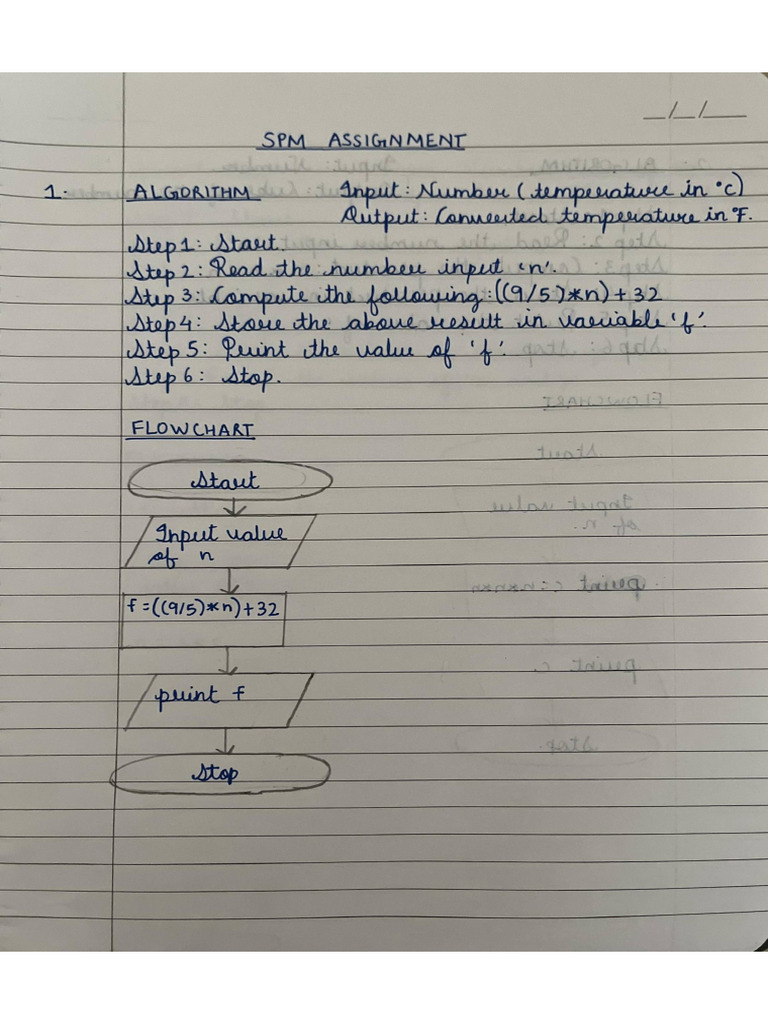 _/_/_
SPM ASSIGNMENT
1. ALGORITHM Input: Number (temperature in °C)
Output: Converted temperature in °F.
Step 1: Start.
Step 2: Read the number input 'n'.
Step 3: Compute the following: ((9/5)*n) + 32
Step 4: Store the above result in variable 'f'.
Step 5: Print the value of 'f'.
Step 6: Stop.
FLOWCHART
Start
Input value
of n
f = ((9/5)*n) + 32
print f
Stop